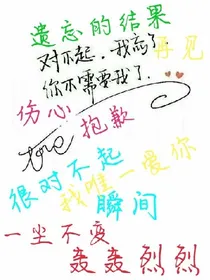 遗忘的结果
对不起,我忘了
再见
你不需要我了.
伤心
抱歉
很对不起
我唯一爱你
瞬间
一坐不变
轰轰烈烈